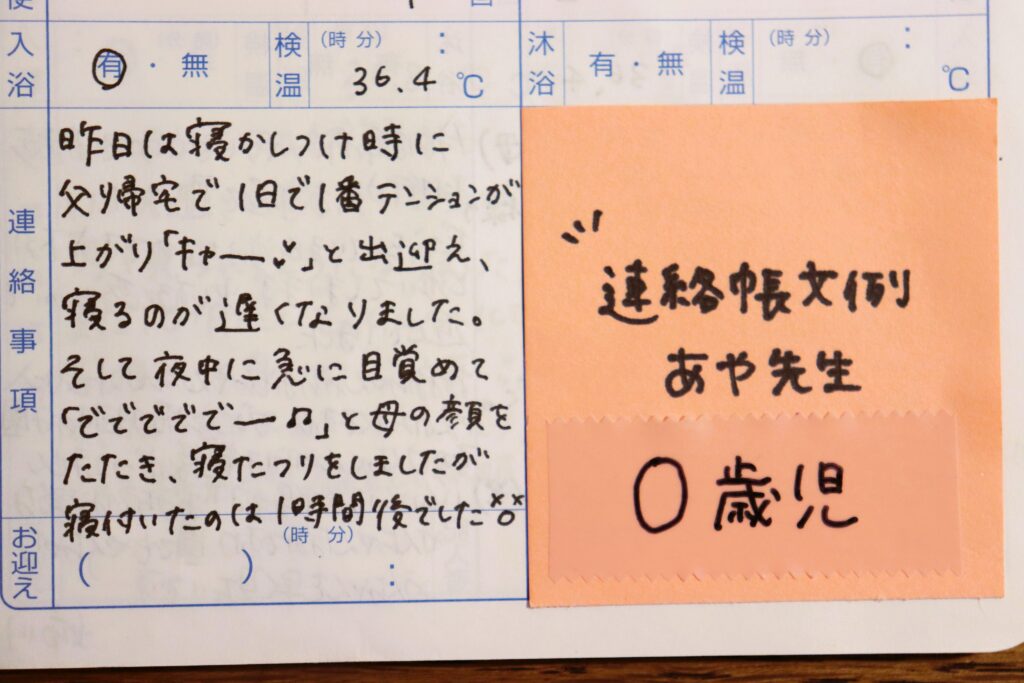 入浴 有・無 検温 (時 分) : 36.4 ℃
沐浴 有・無 検温 (時 分) : ℃
連絡事項
昨日は寝かしつけ時に
父り帰宅で1日で1番テンションが
上がり「キャー♥」と出迎え、
寝るのが遅くなりました。
そして夜中に急に目覚めて
「でででででー♫」と母の顔を
たたき、寝たフリをしましたが
寝付いたのは1時間後でした
お迎え ( ) (時 分) :
連絡帳文例
あや先生
0歳児